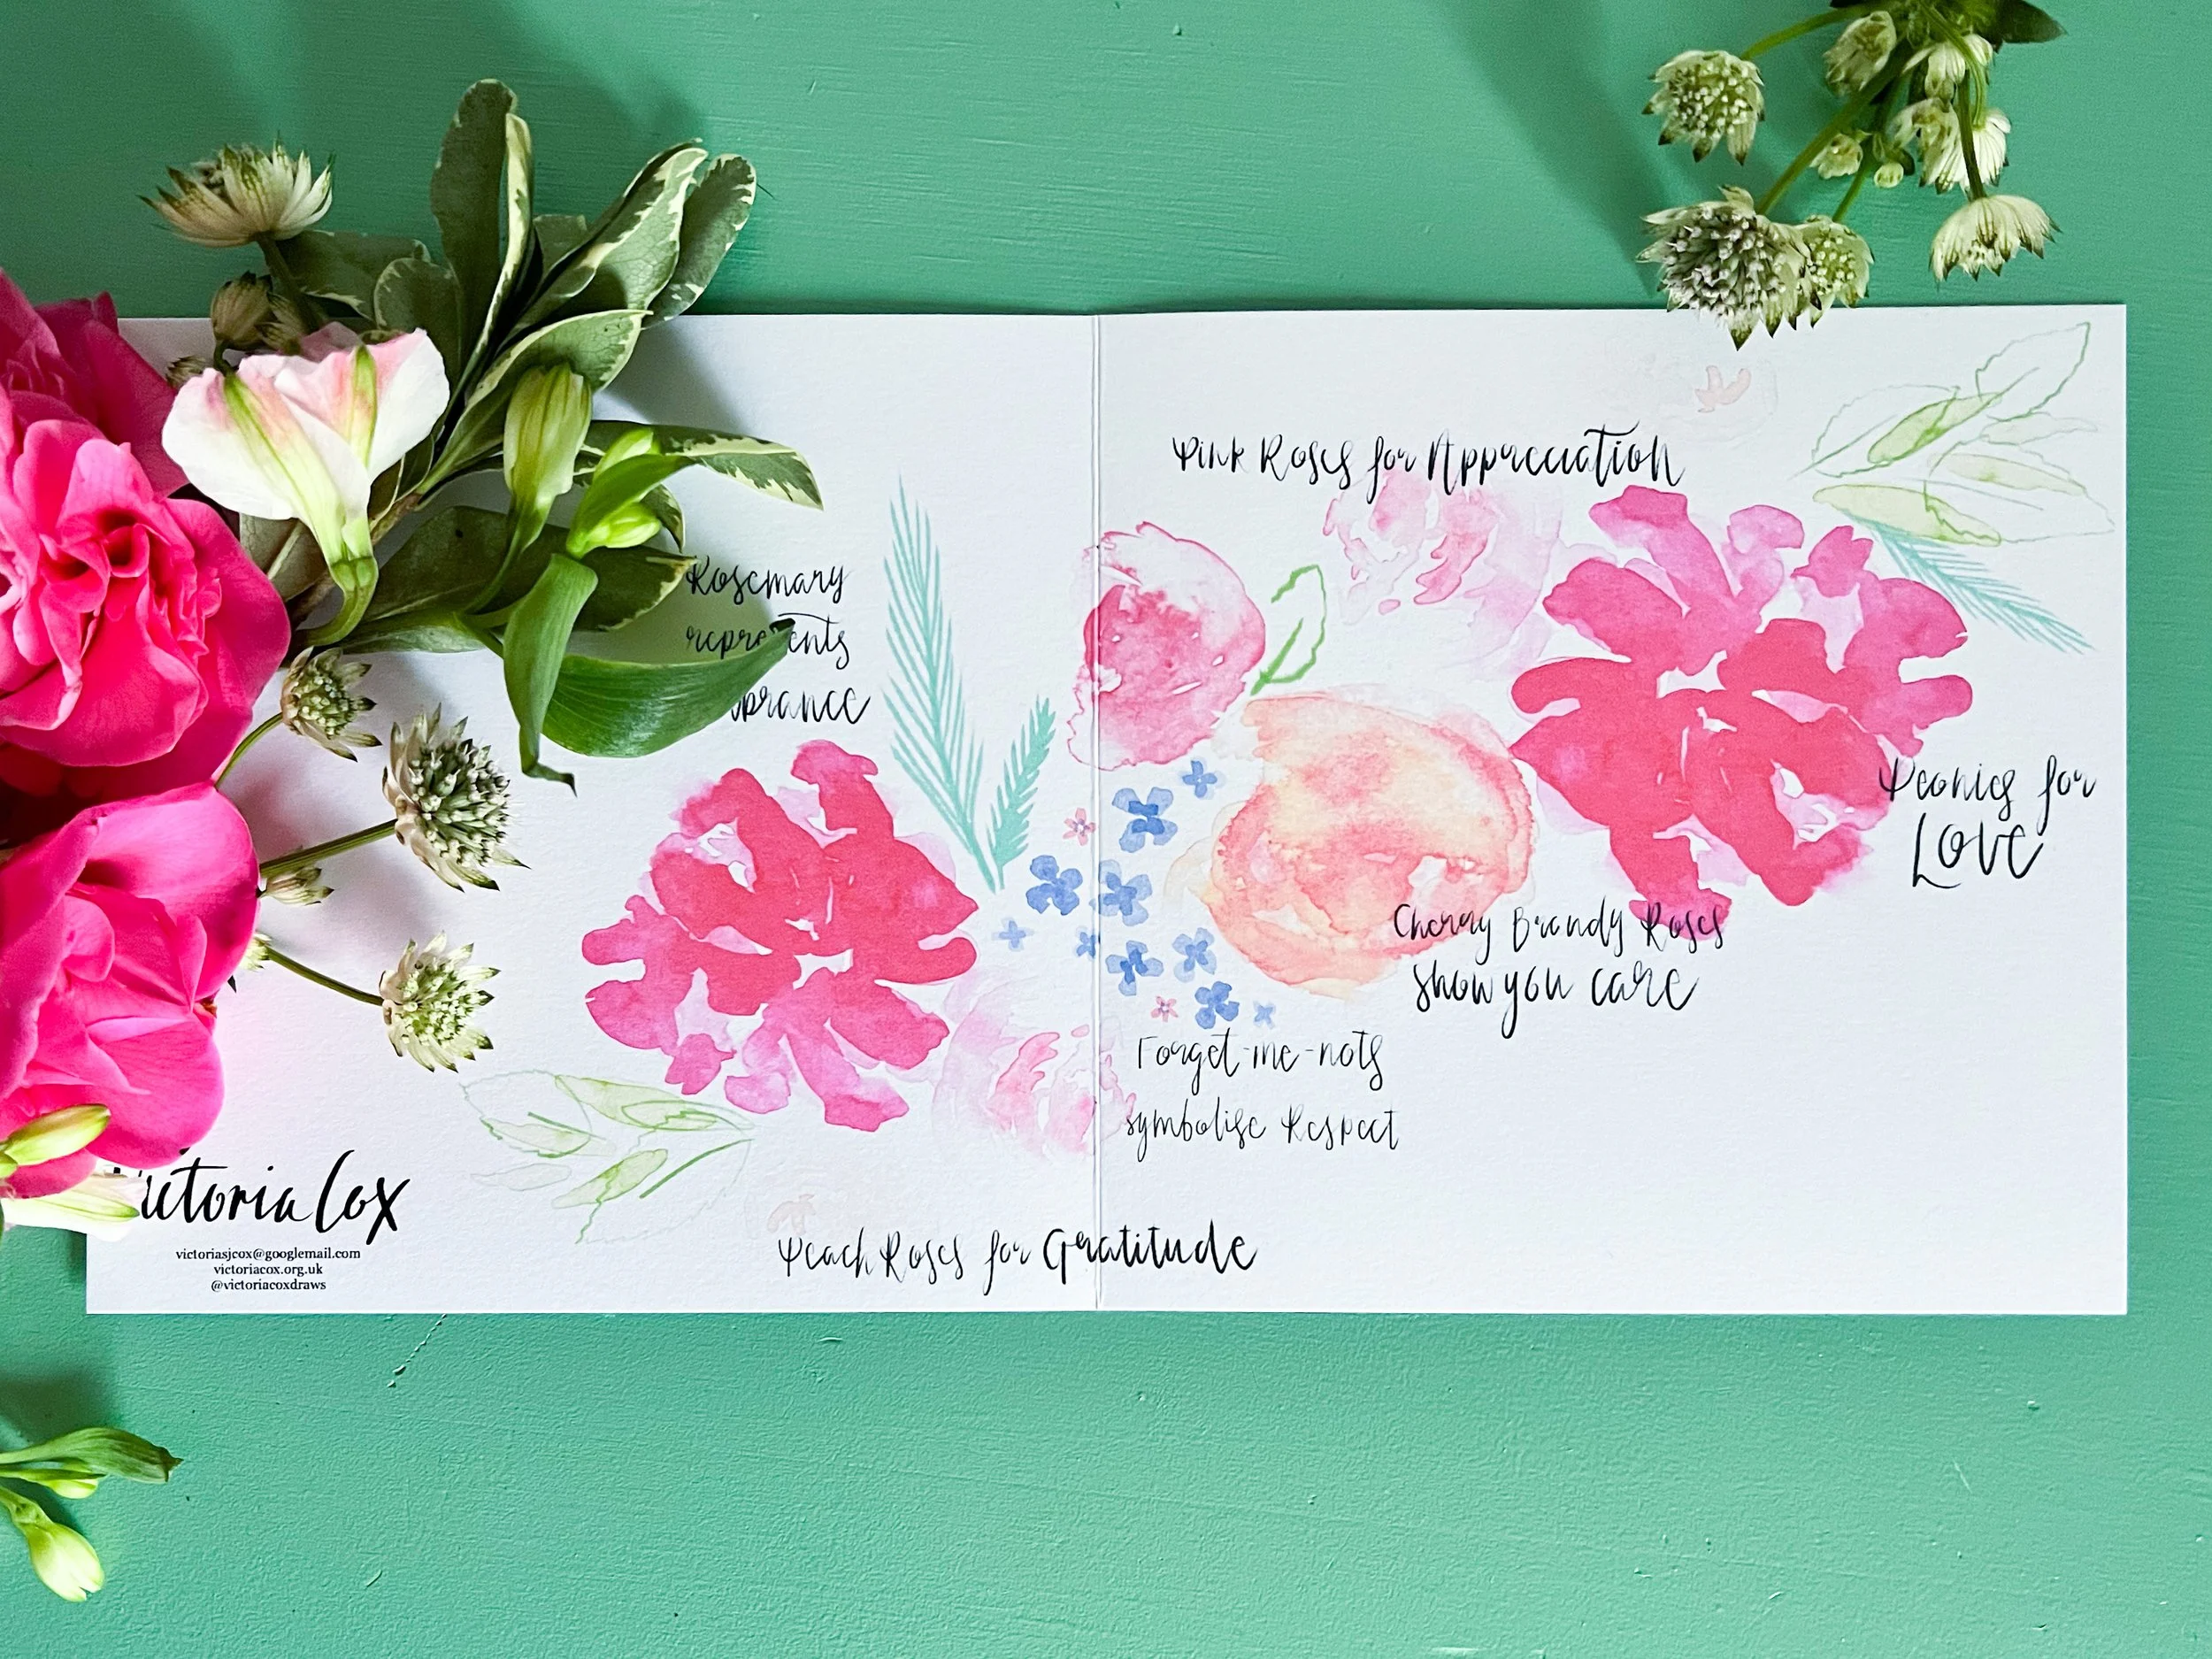 Pink Roses for Appreciation
Rosemary
represents
Peonies for
Love
Cherry Brandy Roses
show you care
Forget-me-nots
symbolise Respect
Peach Roses for Gratitude
Victoria Cox
victoriasjcox@googlemail.com
victoriacox.org.uk
@victoriacoxdraws